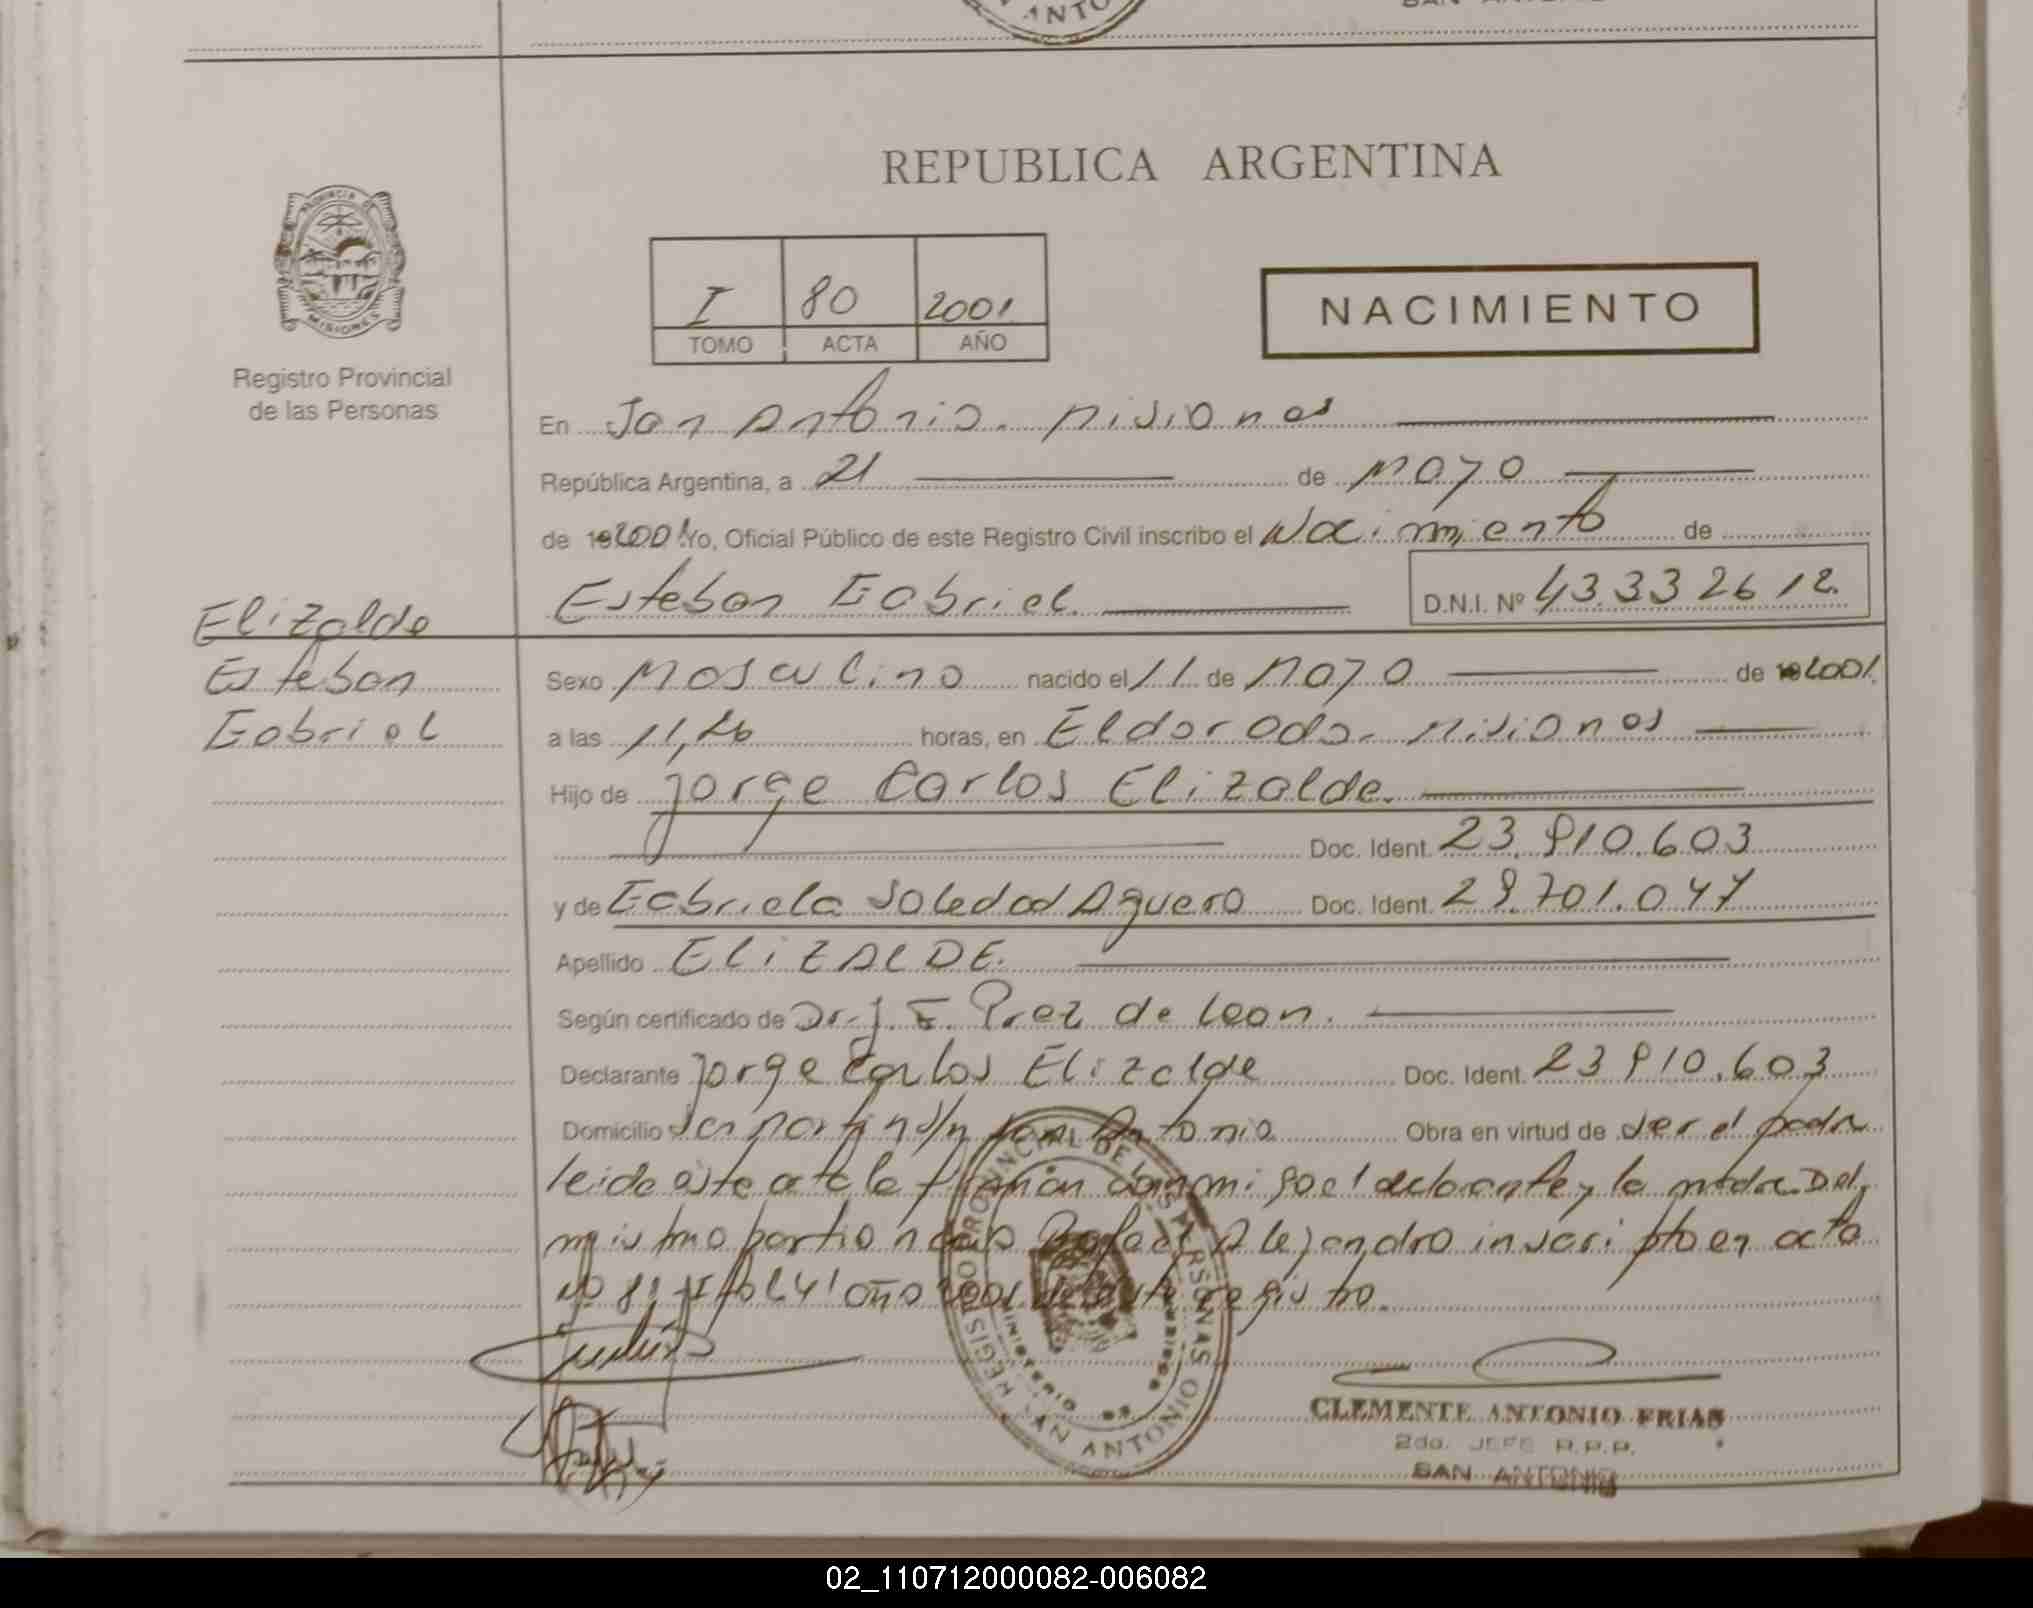 ANTO
SAN ANTONIO
REPUBLICA ARGENTINA
PROVINCIA DE
MISIONES
I 80 2001
TOMO ACTA AÑO
NACIMIENTO
Registro Provincial
de las Personas
En San Antonio. Misiones
República Argentina, a 21 de Mayo
de 2001 Yo, Oficial Público de este Registro Civil inscribo el Nacimiento de
Esteban Gabriel. D.N.I. Nº 43.332612.
Elizalde
Esteban
Gabriel
Sexo Masculino nacido el 11 de Mayo de 2001.
a las 11,26 horas, en Eldorado. Misiones
Hijo de Jorge Carlos Elizalde.
Doc. Ident. 23.910.603
y de Gabriela Soledad Aguero Doc. Ident. 29.701.047
Apellido ELIZALDE.
Según certificado de Dr. J. E. Prez de Leon.
Declarante Jorge Carlos Elizalde Doc. Ident. 23 910.603
Domicilio San Martin s/n San Antonio Obra en virtud de ser el padre
leida este acta la firman conmigo el declarante y la madre. Del
mismo parto nacio Rafael Alejandro inscripto en acta
Nº 81 Tº I folio 41 año 2001 de este registro.
REGISTRO PROVINCIAL DE LAS PERSONAS
MINISTERIO DE
SAN ANTONIO
CLEMENTE ANTONIO FRIAS
2do. JEFE R.P.P.
SAN ANTONIO
02_110712000082-006082